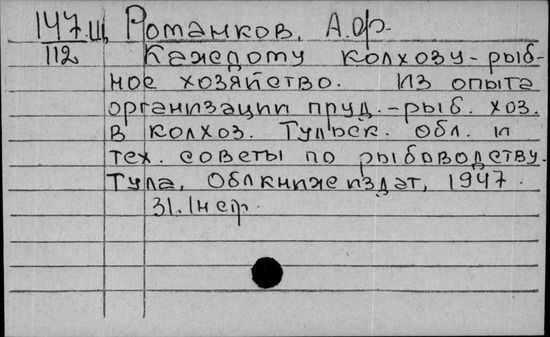 147.Ш, Романков, А.Ф.
112 Каждому колхозу - рыб-
ное хозяйство. Из опыта
организации пруд.-рыб. хоз.
в колхоз. Тульск. обл. и
тех. советы по рыбоводству.
Тула, Облкнижиздат, 1947.